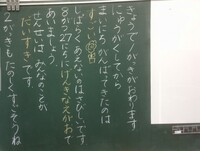 きょうで1がっきがおわります
にゅうがくしてから
まいにちがんばってきたのは
すごい
しばらくあえないのはさびしいです
8がつ27にちにげんきなえがおで
あいましょう
せんせいは みんなのことが
だいすきです。
2がっきもたのしくすごそうね